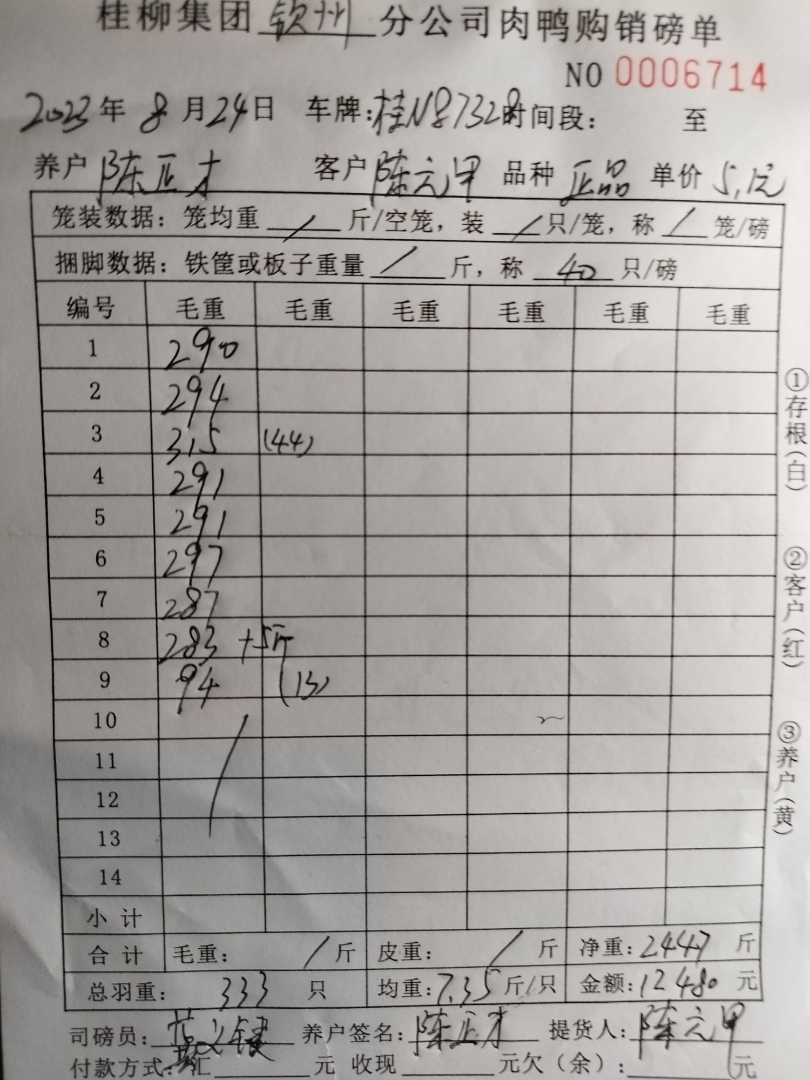 桂柳集团 钦州 分公司肉鸭购销磅单
NO 0006714
2023年 8月24日 车牌:桂N87328时间段: 至
养户 陈正才 客户 陈六甲 品种 正品 单价 5.1元
笼装数据: 笼均重 / 斤/空笼, 装 / 只/笼, 称 / 笼/磅
捆脚数据: 铁筐或板子重量 / 斤, 称 40 只/磅
编号 毛重 毛重 毛重 毛重 毛重 毛重
1 290
2 294
3 315 (44)
4 291
5 291
6 297
7 287
8 283 +5斤
9 94 (13)
10
11
12
13
14
小计
合计 毛重: / 斤 皮重: / 斤 净重: 2447 斤
总羽重: 333 只 均重: 7.35 斤/只 金额: 12480 元
司磅员: 养户签名: 陈正才 提货人: 陈六甲
付款方式: 汇 元 收现 元欠(余): 元
①存根(白)
②客户(红)
③养户(黄)